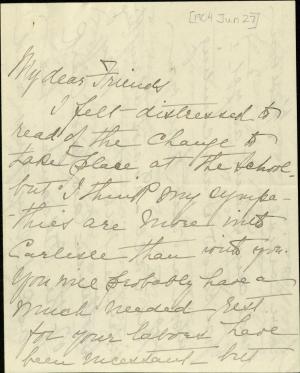 [1904 Jun 27]
My dear Friends
I felt distressed to
read of the change to
take place at the school -
but I think my sympa-
-thies are more with
Carlisle than with you.
You will probably have a
much needed rest
for your labors have
been incessant - but